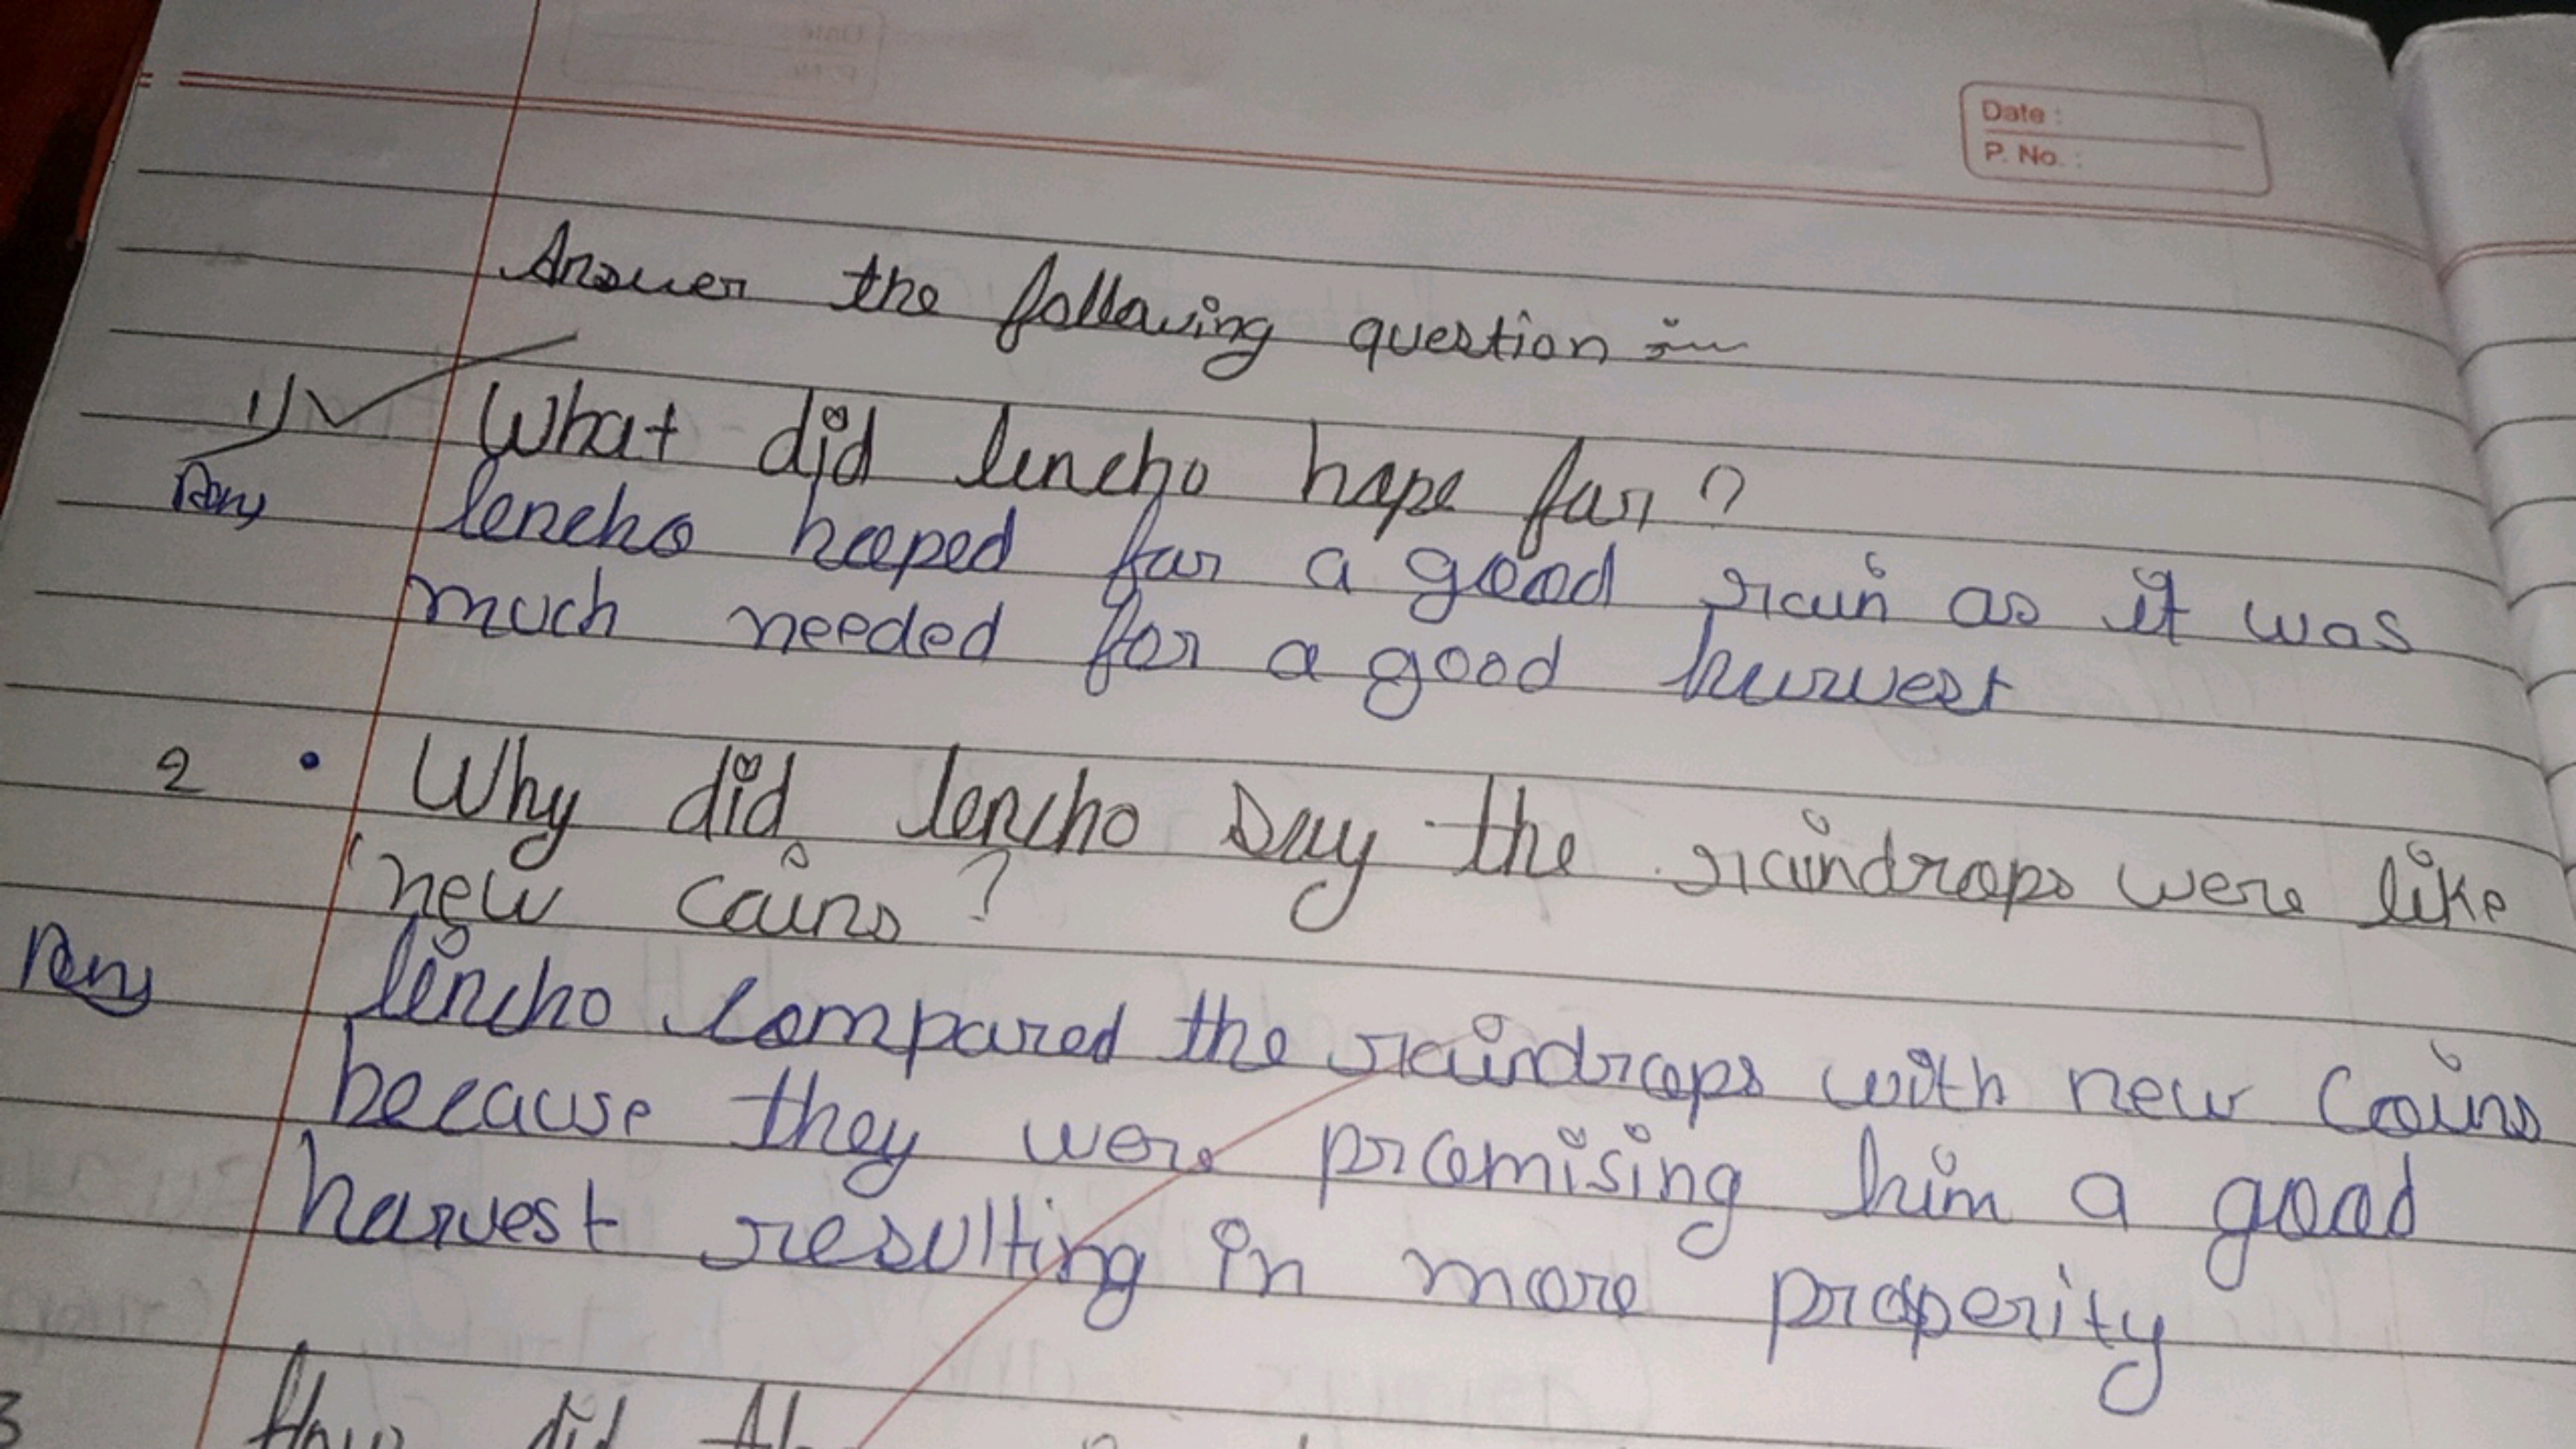 Date :
P. No. :
Answer the following question :-
1) What did lencho hope for ?
Ans lencho hooped for a good rain as it was
much needed for a good harvest
2 . Why did lencho say the raindrops were like
'new coins ?
Ans lencho compared the raindrops with new Coins
because they were promising him a good
harvest resulting in more properity
3 How did the